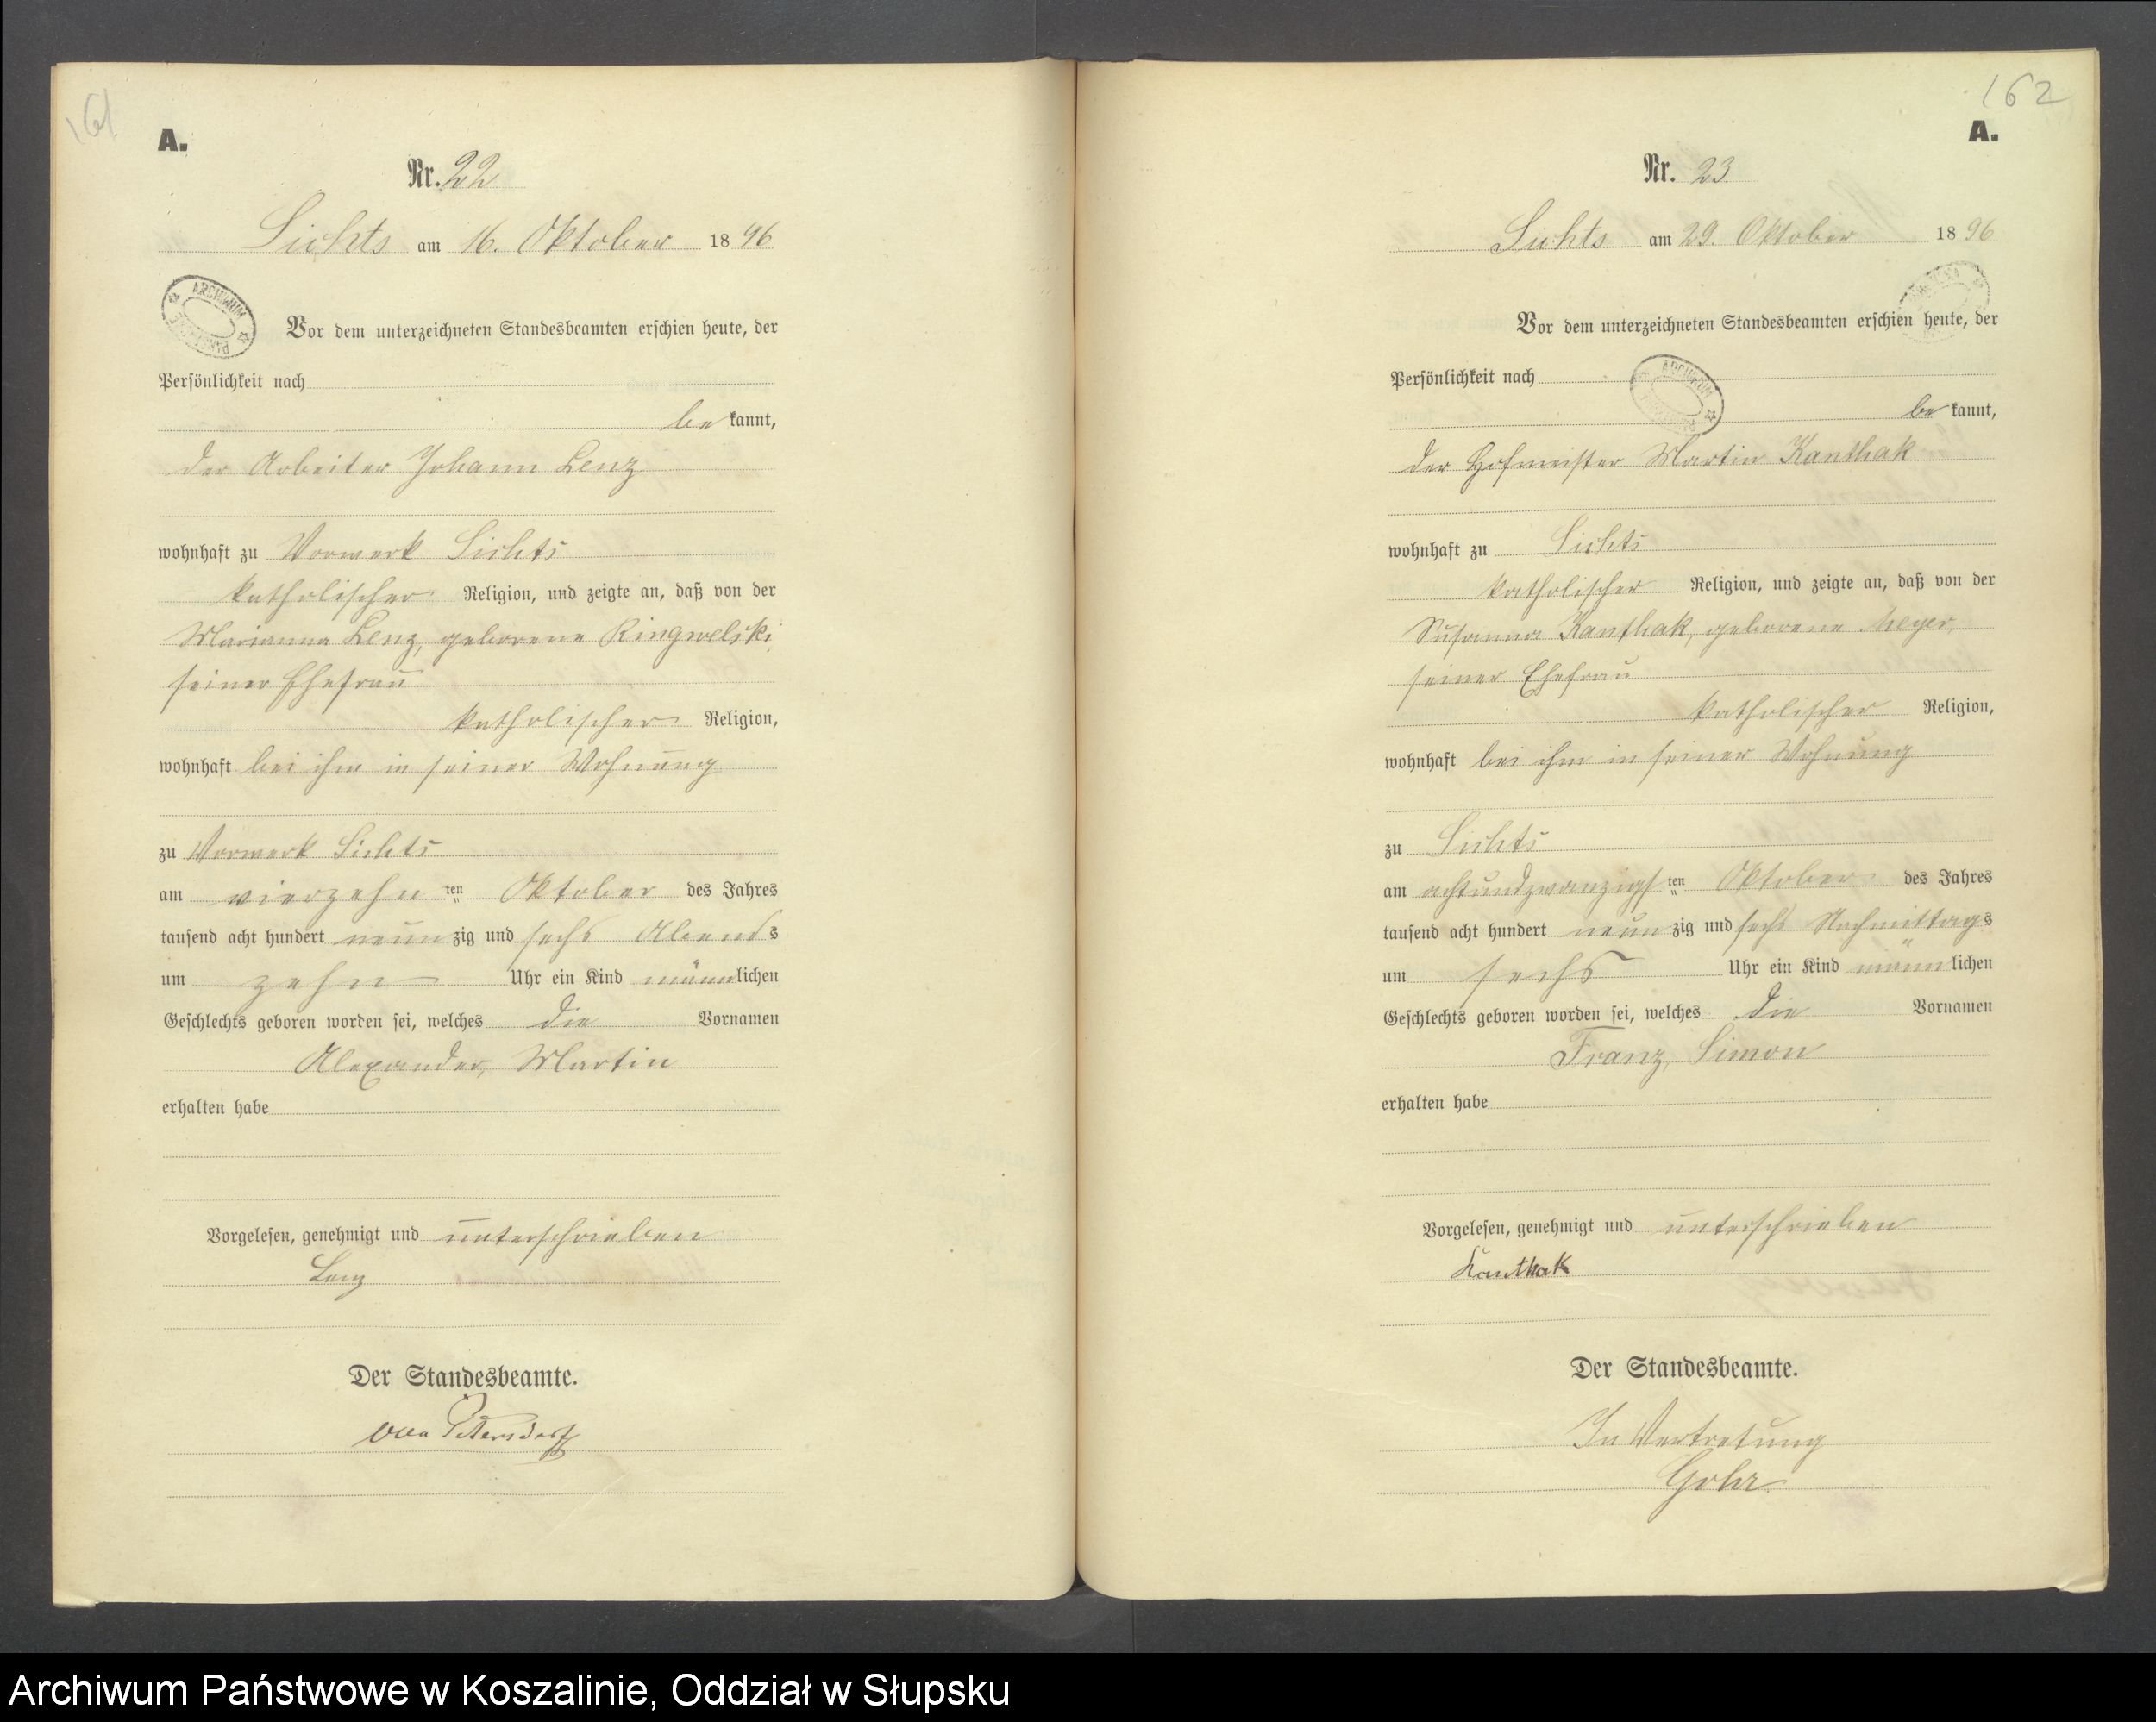 161
A.
Nr. 22
Lichts am 16. Oktober 1896
ARCHIWUM
Vor dem unterzeichneten Standesbeamten erschien heute, der
Persönlichkeit nach
bekannt,
der Arbeiter Johann Lenz
wohnhaft zu Vorwerk Lichts
katholischer Religion, und zeigte an, daß von der
Marianna Lenz, geborene Ringwelski,
seiner Ehefrau
katholischer Religion,
wohnhaft bei ihm in seiner Wohnung
zu Vorwerk Lichts
am vierzehn ten Oktober des Jahres
tausend acht hundert neunzig und sechs Abends
um zehn Uhr ein Kind männlichen
Geschlechts geboren worden sei, welches die Vornamen
Alexander, Martin
erhalten habe
Vorgelesen, genehmigt und unterschrieben
Lenz
Der Standesbeamte.
von Petersdorff
162
A.
Nr. 23.
Lichts am 29. Oktober 1896
Vor dem unterzeichneten Standesbeamten erschien heute, der
Persönlichkeit nach
ARCHIWUM
bekannt,
der Hofmeister Martin Kanthak
wohnhaft zu Lichts
katholischer Religion, und zeigte an, daß von der
Susanna Kanthak, geborene Meyer,
seiner Ehefrau
katholischer Religion,
wohnhaft bei ihm in seiner Wohnung
zu Lichts
am achtundzwanzigsten Oktober des Jahres
tausend acht hundert neunzig und sechs Nachmittags
um sechs Uhr ein Kind männlichen
Geschlechts geboren worden sei, welches die Vornamen
Franz, Simon
erhalten habe
Vorgelesen, genehmigt und unterschrieben
Kanthak
Der Standesbeamte.
In Vertretung
Gohr
Archiwum Państwowe w Koszalinie, Oddział w Słupsku